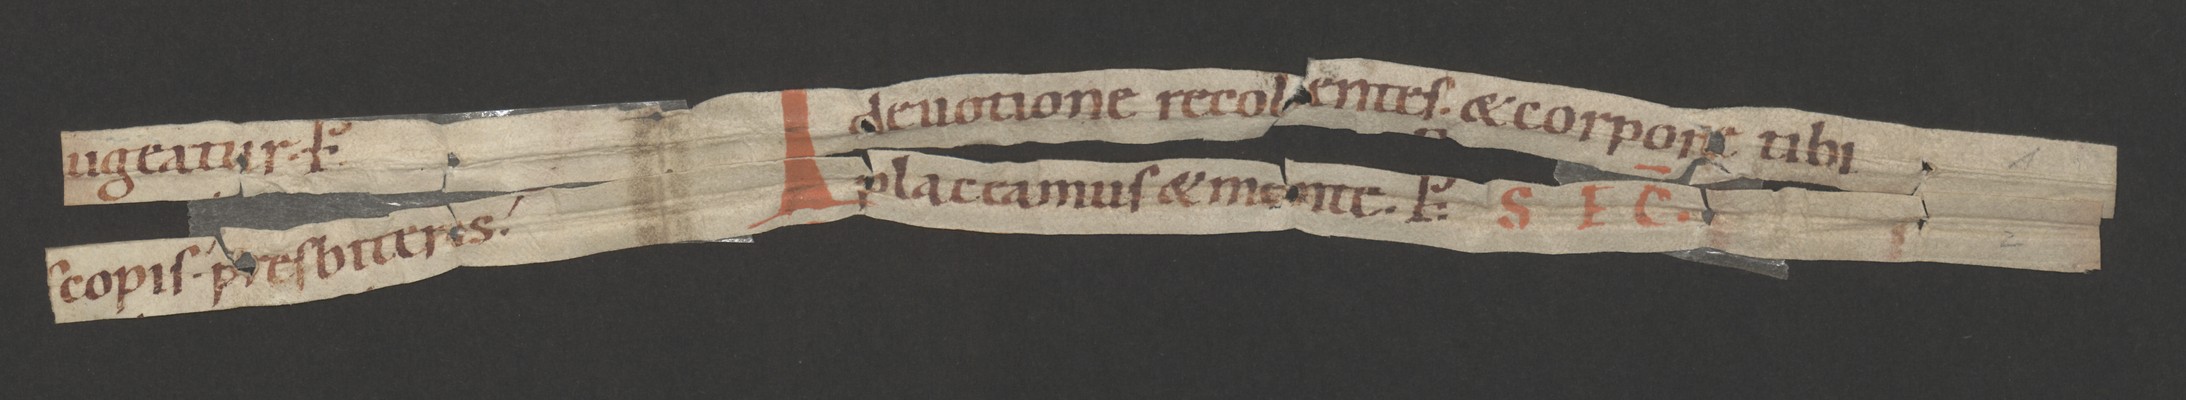 ugeatur. ꝑ
scopis. presbiteris.
deuotione recolentes. & corpore tibi
placeamus & mente. ꝑ S E C̅.
1
2